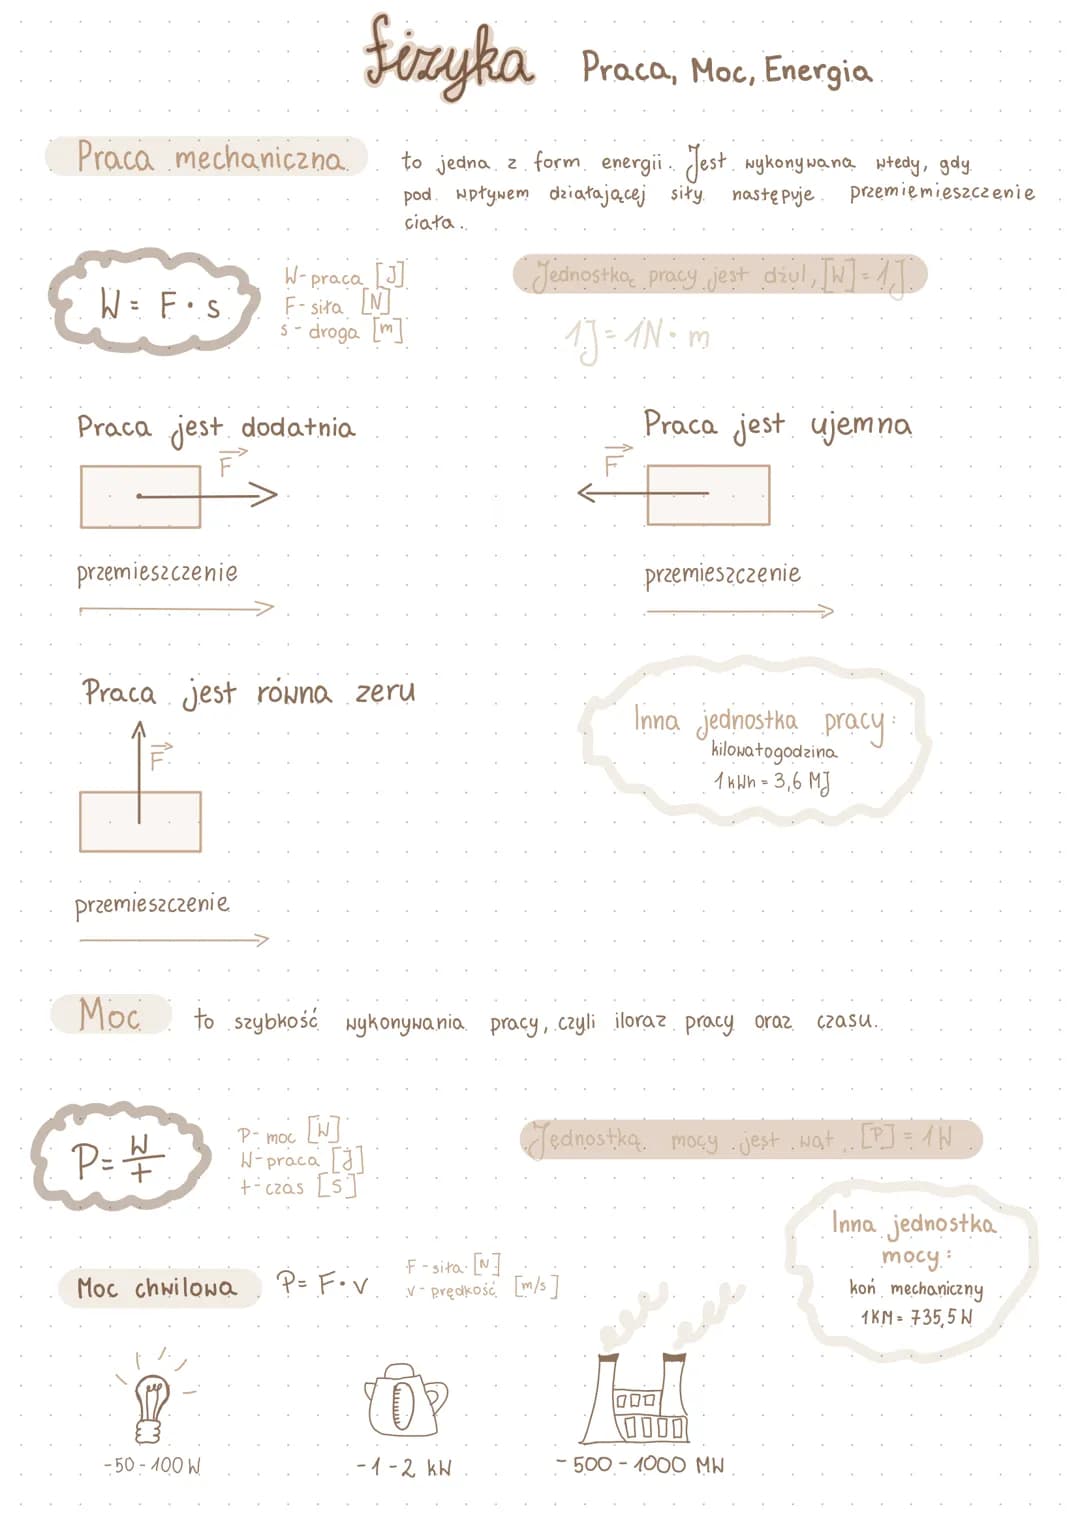 fizyka Praca, Moc, Energia
Praca mechaniczna
to jedna z form energii. Jest wykonywana wtedy, gdy
pod wpływem działającej siły następuje przemiemieszczenie
ciała.
W = F · s
W- praca [J]
F- siła [N]
s - droga [m]
Jednostką pracy jest dżul, [W] = 1J
1J = 1N · m
Praca jest dodatnia
F
przemieszczenie
Praca jest ujemna
F
przemieszczenie
Praca jest równa zeru
F
przemieszczenie
Inna jednostka pracy:
kilowatogodzina
1 kWh = 3,6 MJ
Moc to szybkość wykonywania pracy, czyli iloraz pracy oraz czasu.
P = W/t
P- moc [W]
W- praca [J]
t- czas [s]
Jednostką mocy jest wat [P] = 1W
Inna jednostka
mocy:
koń mechaniczny
1KM = 735,5 W
Moc chwilowa P = F · v
F - siła [N]
v - prędkość [m/s]
~50 - 100 W
~1 - 2 kW
~ 500 - 1000 MW